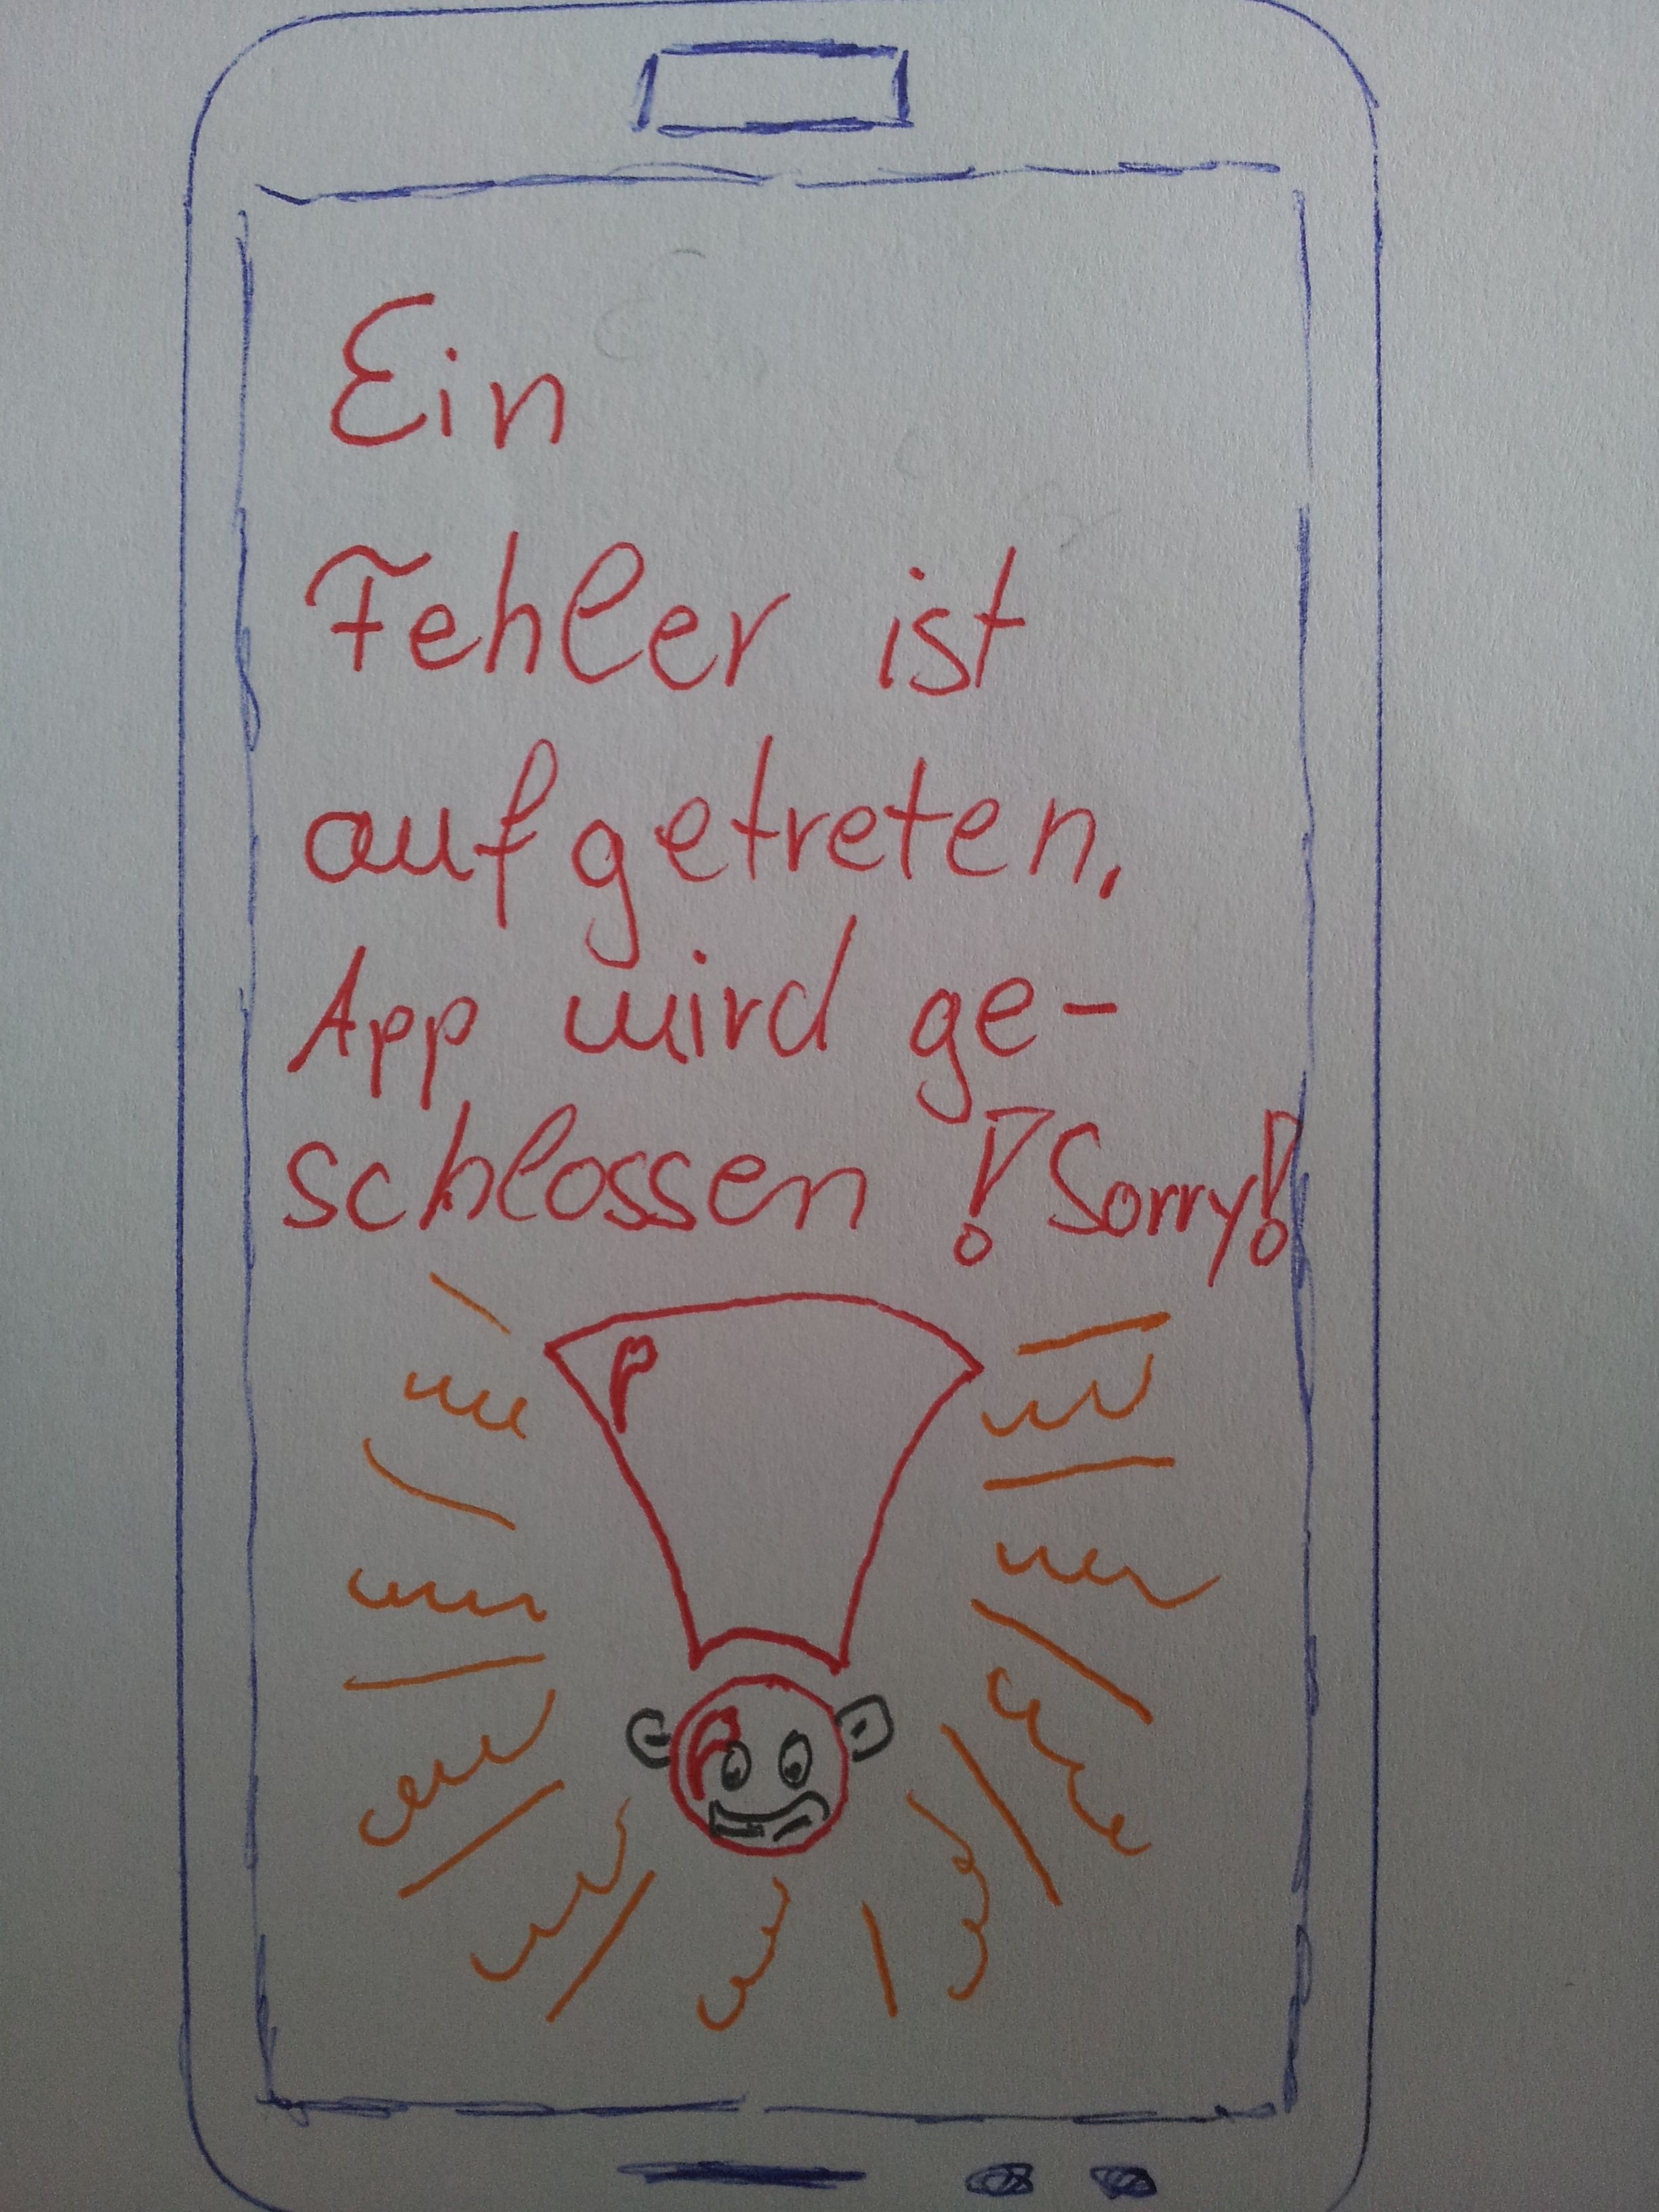 Ein
Fehler ist
aufgetreten.
App wird ge-
schlossen! Sorry!